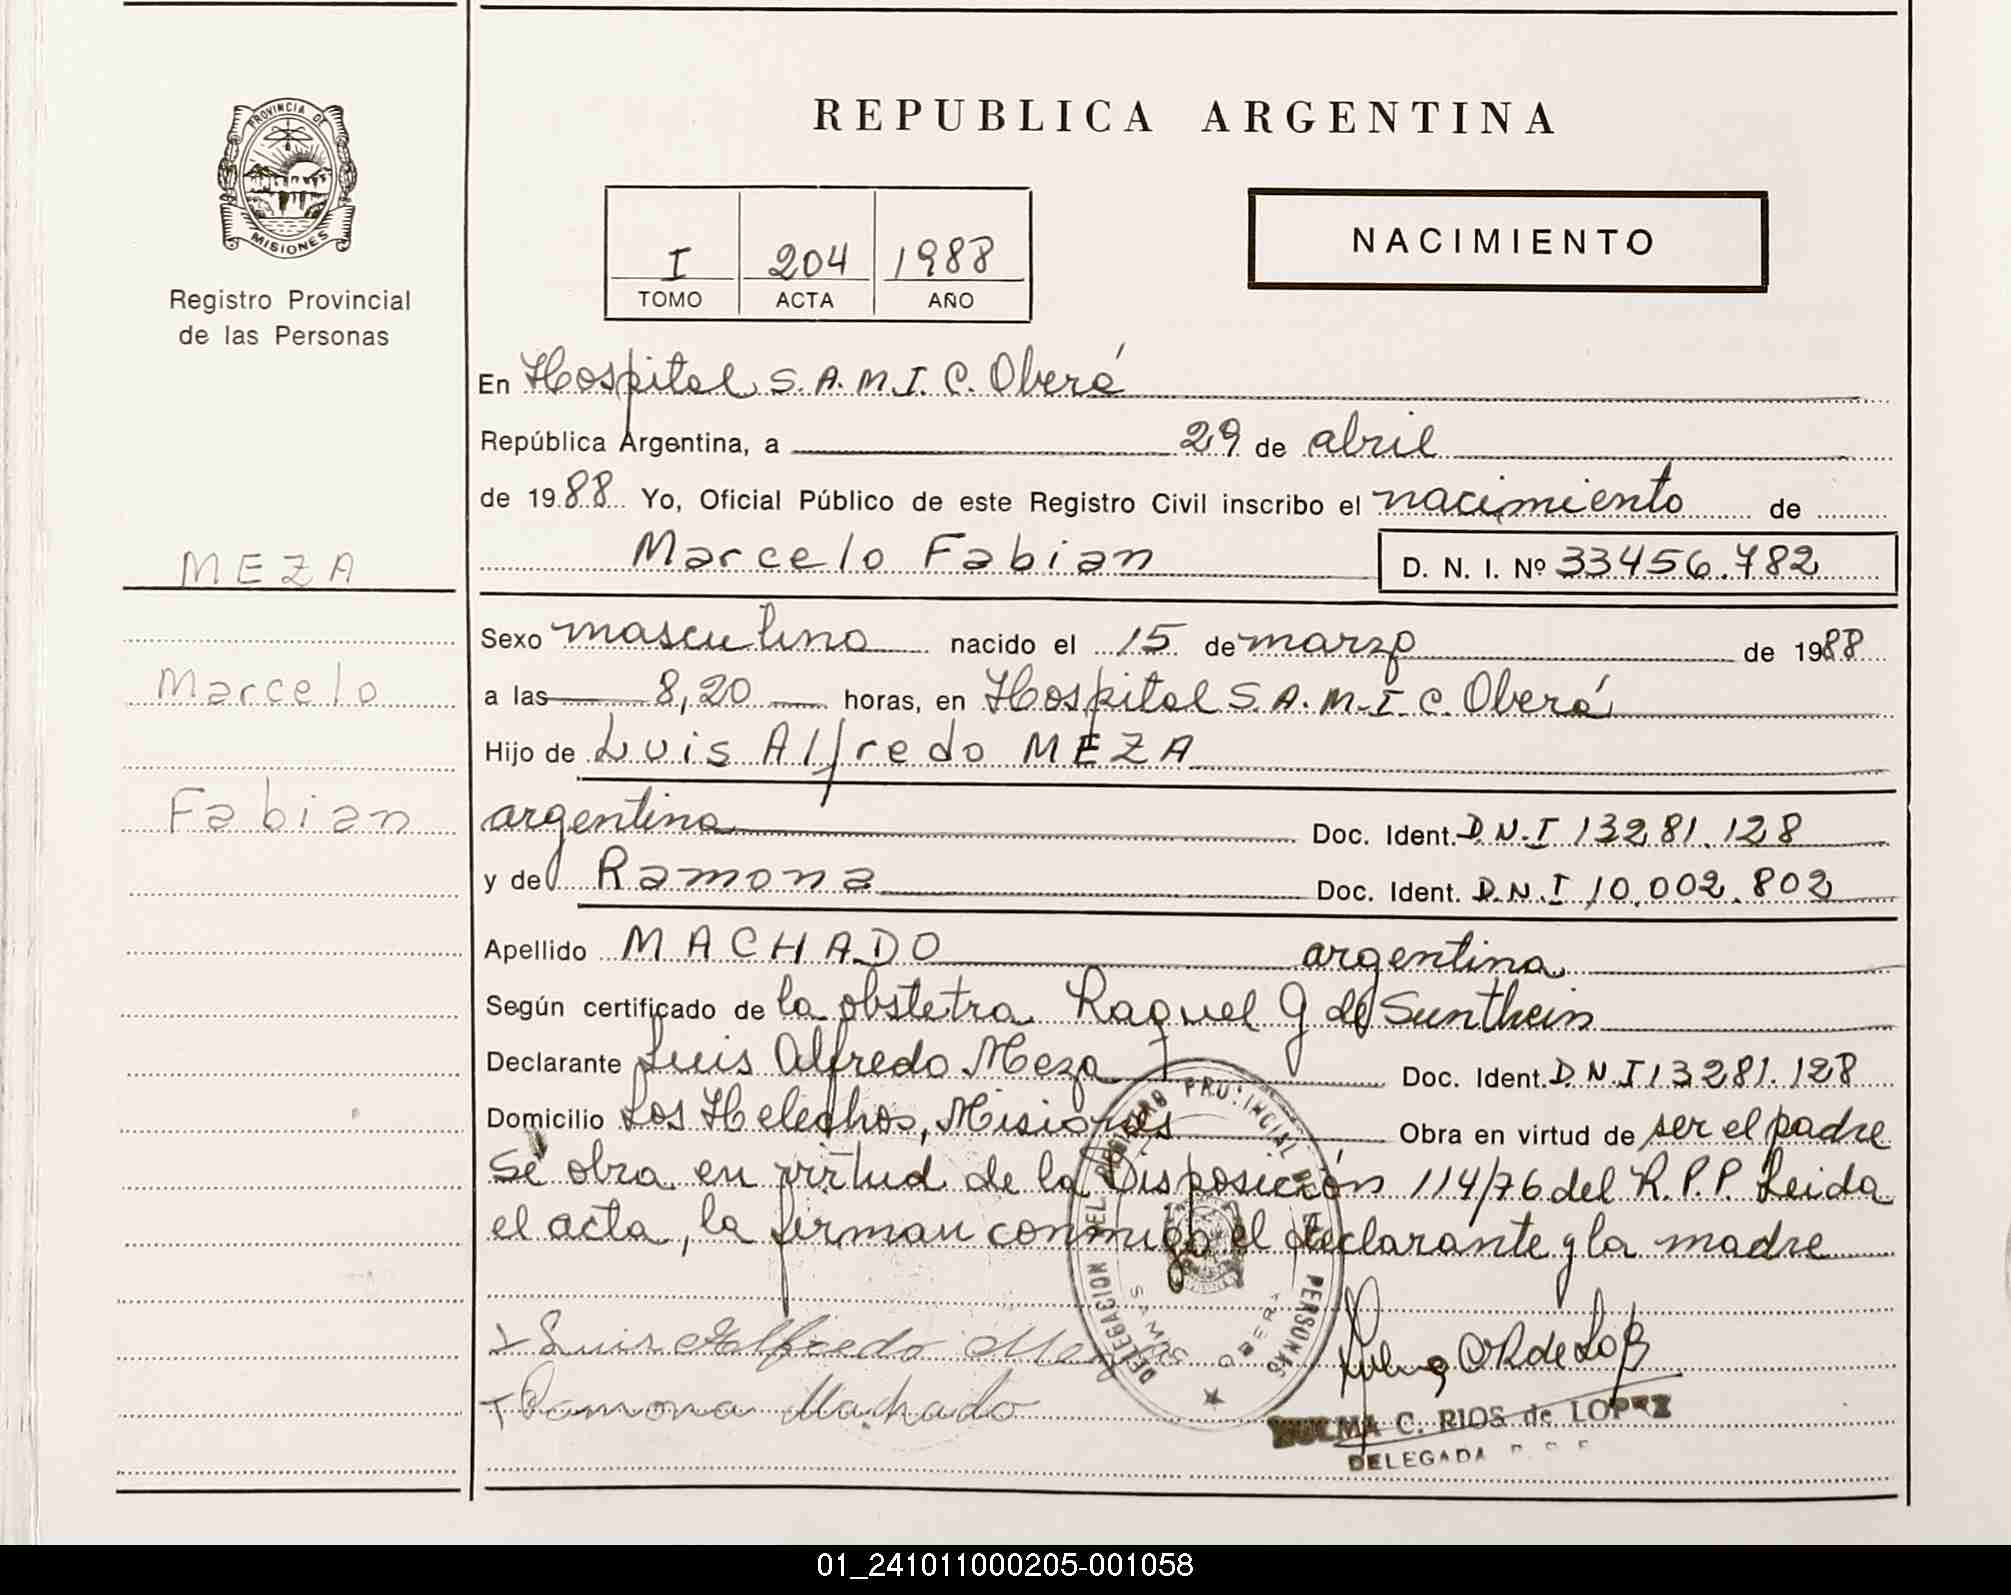 REPUBLICA ARGENTINA
PROVINCIA DE
MISIONES
Registro Provincial
de las Personas
I 204 1988
TOMO ACTA AÑO
NACIMIENTO
En Hospital S.A.M.I.C. Oberá
República Argentina, a 29 de abril
de 1988 Yo, Oficial Público de este Registro Civil inscribo el nacimiento de
Marcelo Fabian D. N. I. Nº 33456.782
MEZA
Marcelo
Fabian
Sexo masculino nacido el 15 de marzo de 1988
a las 8,20 horas, en Hospital S.A.M.I.C. Oberá
Hijo de Luis Alfredo MEZA
argentina Doc. Ident. D.N.I 13281.128
y de Ramona Doc. Ident. D.N.I 10.002.802
Apellido MACHADO argentina
Según certificado de la obstetra Raquel G de Sunthein
Declarante Luis Alfredo Meza Doc. Ident. D.N.I 13281.128
Domicilio Los Helechos, Misiones Obra en virtud de ser el padre
Se obra en virtud de la Disposición 114/76 del R.P.P. Leida
el acta, la firman conmigo el declarante y la madre
Luis Alfredo Meza
Ramona Machado
DELEGACION DEL REGISTRO PROVINCIAL DE LAS PERSONAS
SAMIC OBERA
C. RIOS de LOPEZ
DELEGADA
01_241011000205-001058